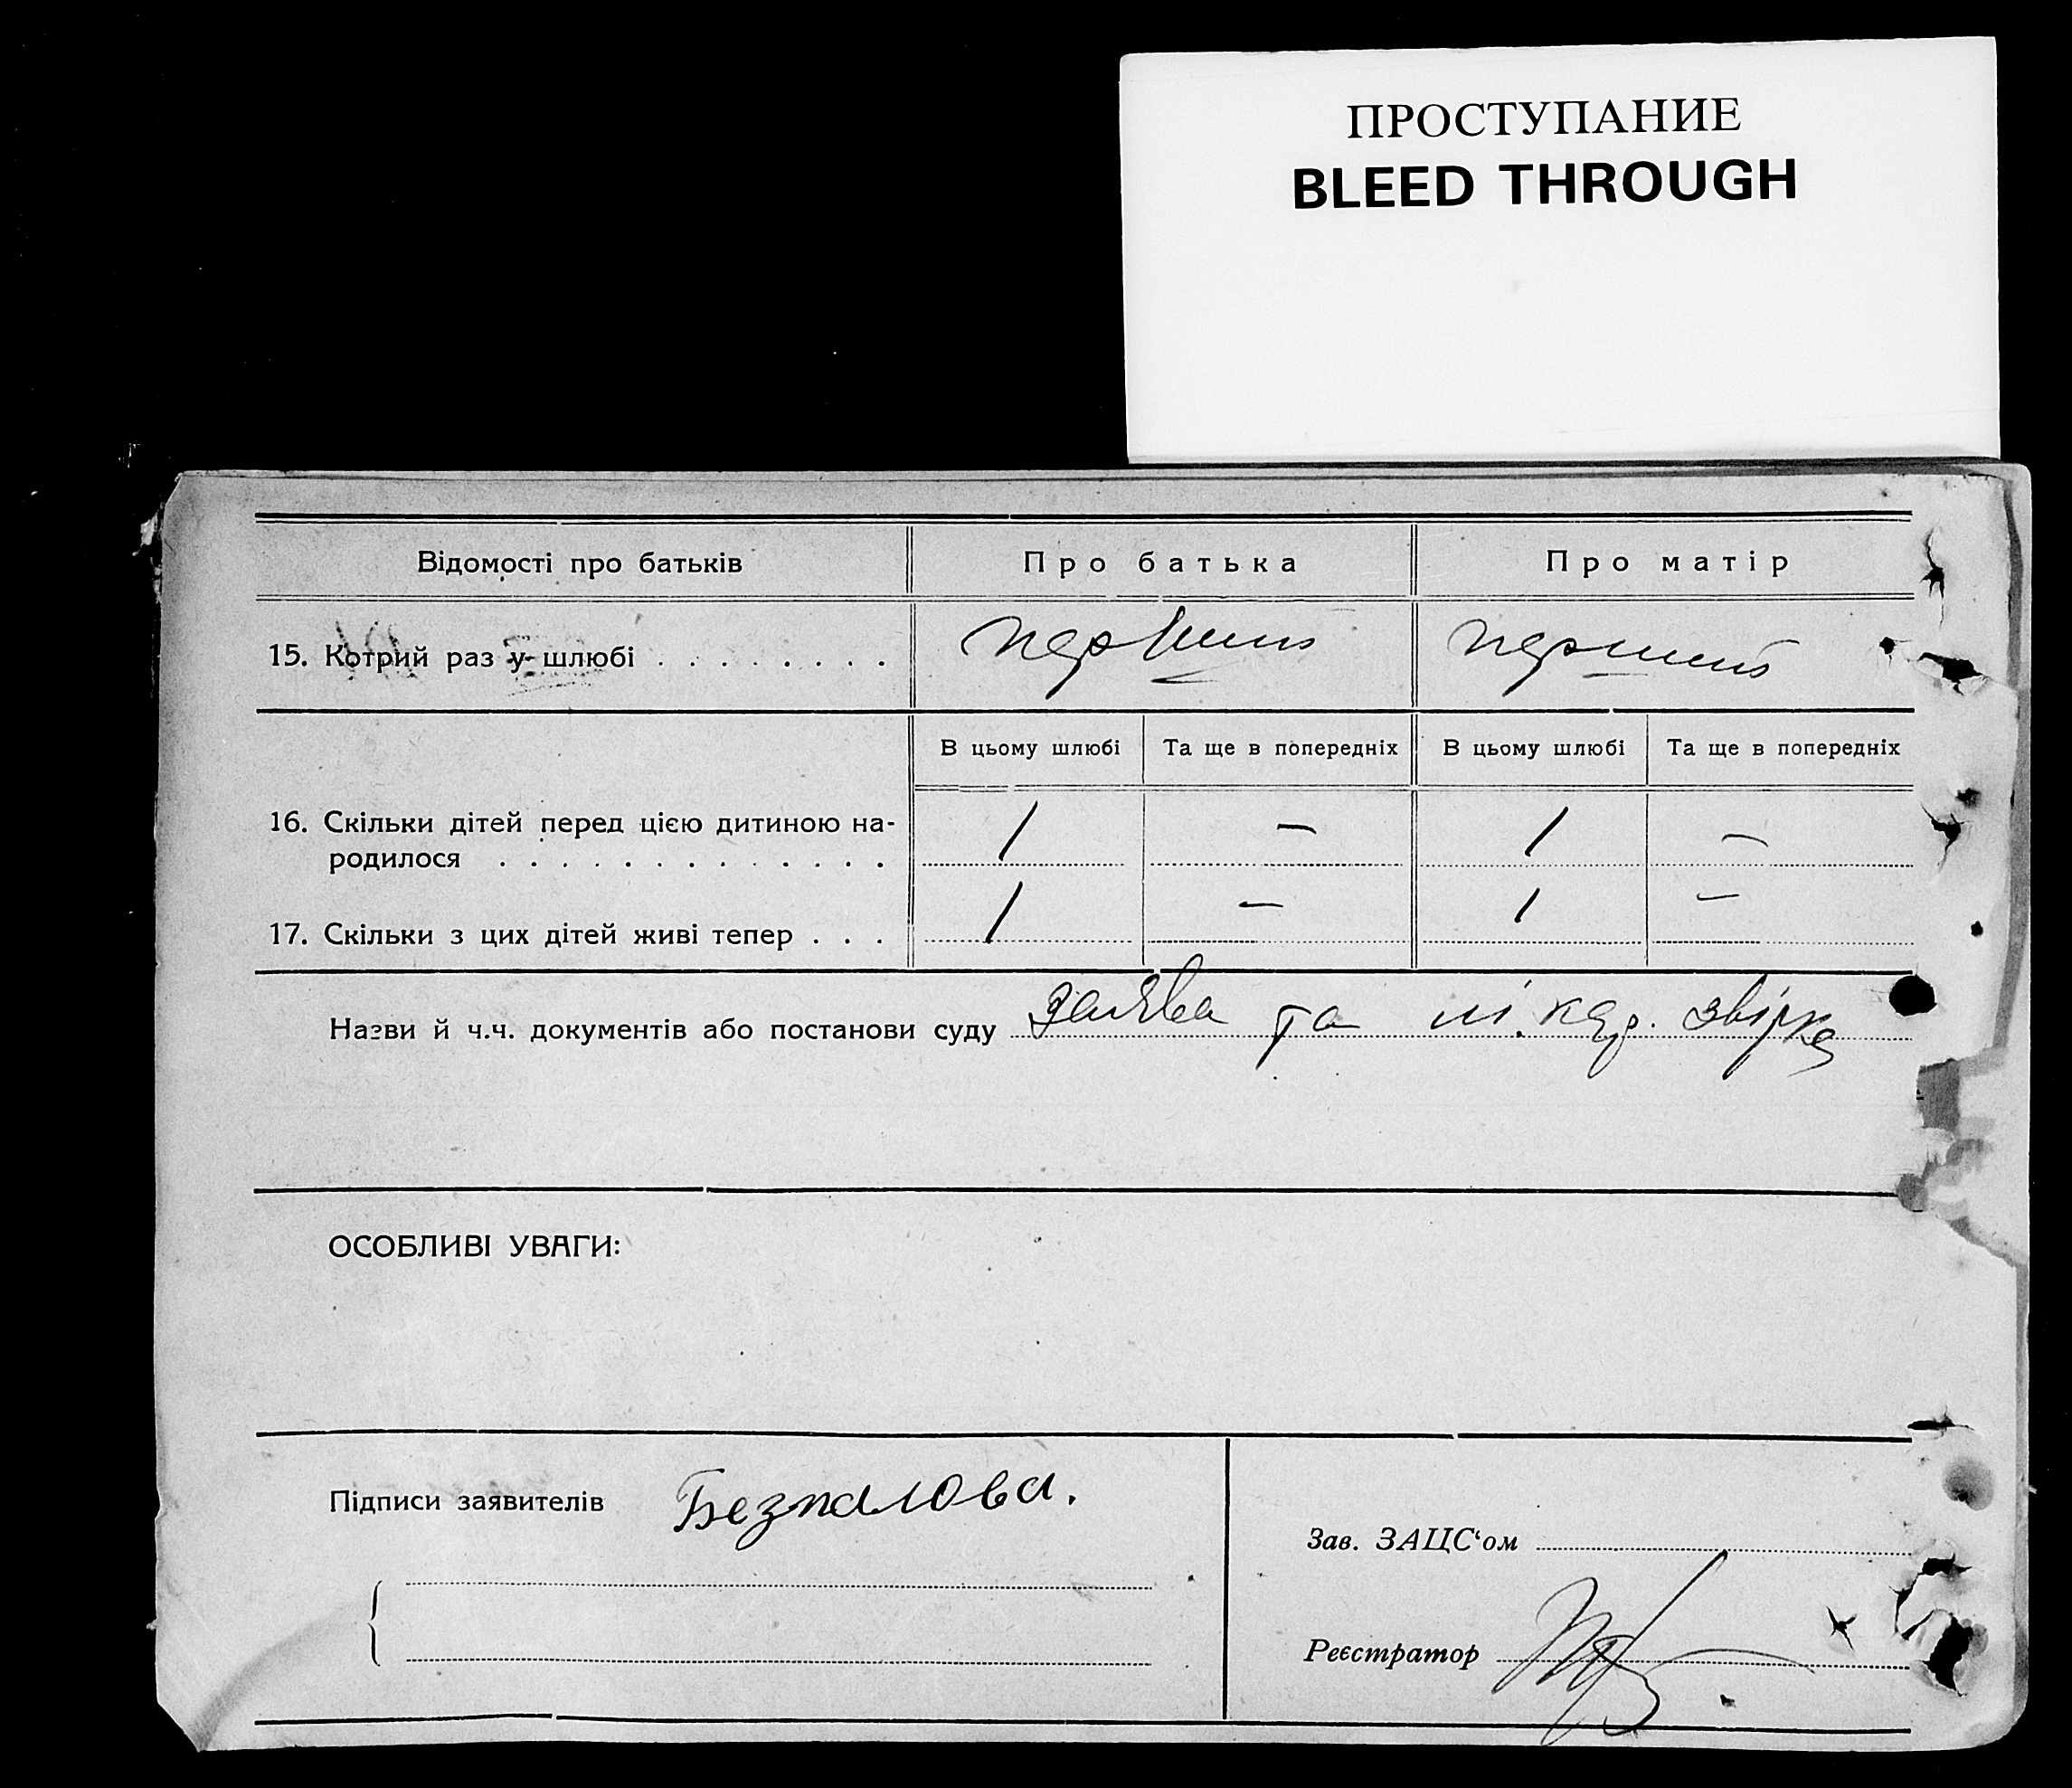 ПРОСТУПАНИЕ
BLEED THROUGH
Відомості про батьків Про батька Про матір
15. Котрий раз у шлюбі . . . . . . . . перший перший
В цьому шлюбі Та ще в попередніх В цьому шлюбі Та ще в попередніх
16. Скільки дітей перед цією дитиною на-
родилося . . . . . . . . . . . . . 1 — 1 —
17. Скільки з цих дітей живі тепер . . . 1 — 1 —
Назви й ч.ч. документів або постанови суду заява та лікар. звірка
ОСОБЛИВІ УВАГИ:
Підписи заявителів Безпалова.
Зав. ЗАЦС‘ом
Реєстратор